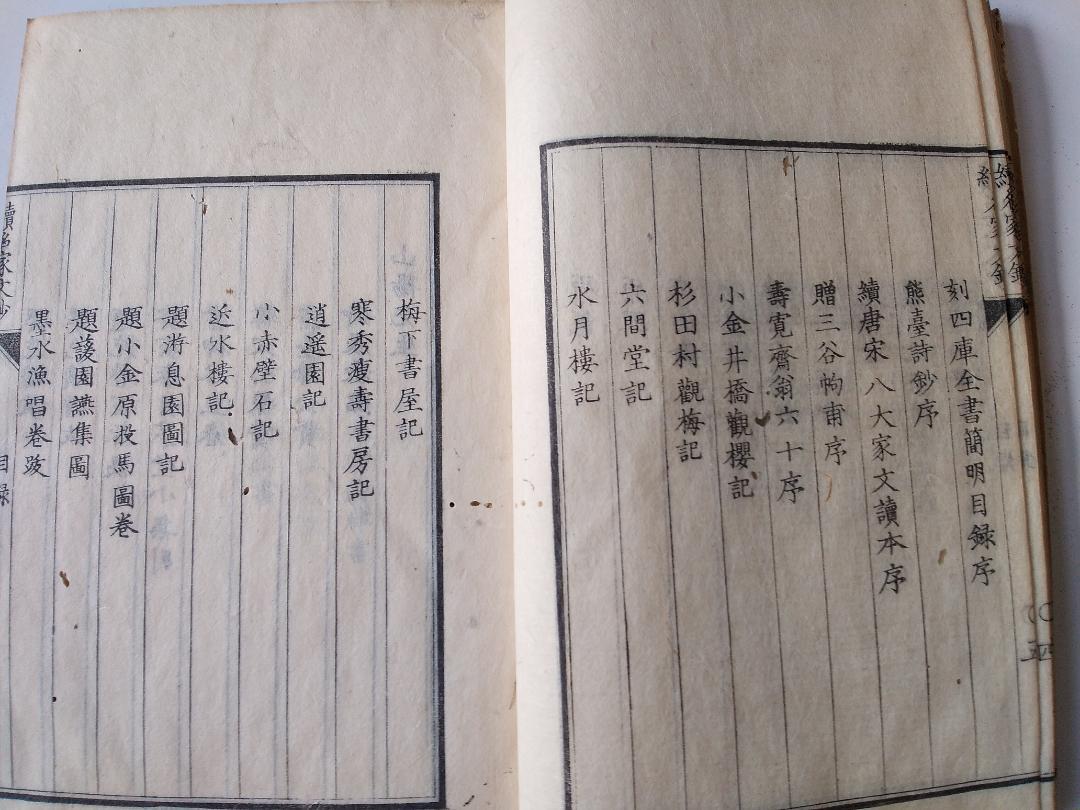 刻四庫全書簡明目録序
熊臺詩鈔序
續唐宋八大家文讀本序
贈三谷恂甫序
壽寛齋翁六十序
小金井橋觀櫻記
杉田村觀梅記
六間堂記
水月樓記
梅下書屋記
寒秀瘦壽書房記
逍遥園記
小赤壁石記
近水樓記
題游息園圖記
題小金原投馬圖卷
題蘐園讌集圖
墨水漁唱卷跋
續名家文鈔
目録